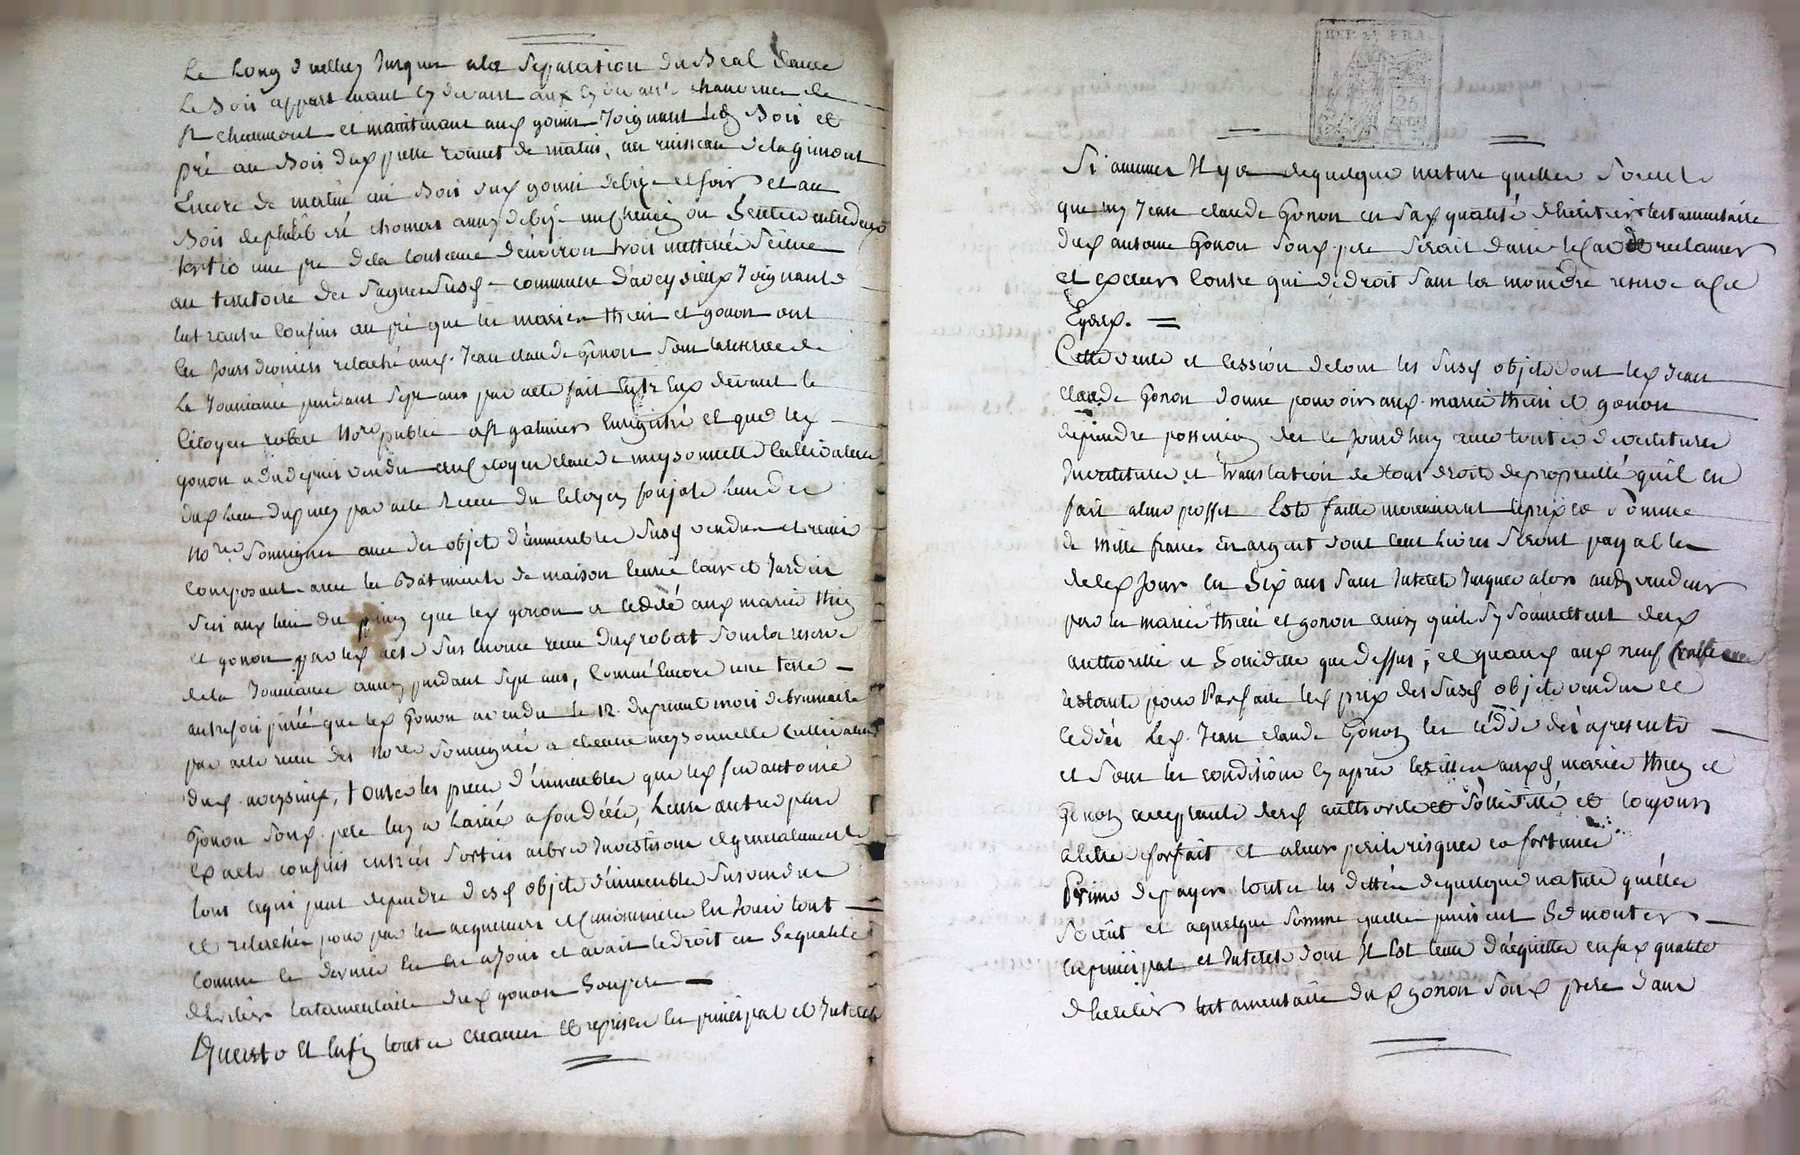 Le Long d'icelluy Jusques ala Separation du Beal dance
Le Bois appartenant cy devant aux cy devant chanoines de
St chaumont et maintenant aux gonin Joignant led Bois et
pré au Bois dux pierre ronnet de matin, au ruisseau de la gimont
Encore de matin au Bois dux gonin debize et soir et au
Bois
tertio une pre de la contenue denviron trois metterée Scitue
au territoire des Sagnes Susd commune d'aveysieux Joignant
Les autre Confins au pré que les mariés thieu et gonon ont
les Jours derniers relaché aux. Jean claude Gonon Sous la reserve de
La Jouissance pendant Sept ans par acte fait Entre Eux devant le
Citoyen robert Nore public a St galmier Enregistré et que lex
gonon a du depuis vendu aux citoyen claude meysonnette Cultivateur
dux lieu du piney par acte Receu du Citoyen
Nore Soussigner avec des objets d'immeubles Susd vendu et remis
Composant avec les Bâtiments de maison Curée Cour et Jardin
Sis aux lieu du piney que lex gonon a ceddé aux mariés thieu
et gonon par lex acte Sus Enoncé receu dux robert Sous la reserve
de la Jouissance aussy pendant Sept ans, Comme Encore une terre
autrefois purée que lex Gonon a vendu le 12 du present mois de brumaire
par acte receu des Nore Soussigné a claude meysonnette Cultivateur
dud. aveysieux, toutes les pieces d'immeubles que lex feu antoine
Gonon Son. pere luy a laissé a fondées, Leur autre part
Ex acte confins entrées Sorties arbres Investisons et generalement
tous cequi peut dependre desd objets d'immeubles Sus vendu
et relachés pour par les acquereurs En Jouir tout
Comme le dernier En a Joui et avait le droit en Sa qualité
dheritier testamentaire dux gonon Son pere
Quarto et Enfin toutes creances et reprises En principal et Interets
Si aucunes Il y a de quelque nature quelles Soient
que luy Jean claude Gonon en Sax qualité dheritier testamentaire
dux antoine Gonon Son. pere Serait dans le cas de reclamer
et Exercer Contre qui de droit Sans la moindre reserve a ce
Egard.
Cette vente et cession de tout les Susd objets dont lex Jean
claude Gonon donne pouvoir aux. mariés thieu et gonon
deprendre possession des ce Jourdhuy avec toutes devestitures
Investiture et translation de tous droits de proprietté quil en
fait aleur proffit Est faitte moyennant le prix et Somme
de mille francs En argent dont Cent Livres Seront payables
de cex Jour En Six ans Sans Interets Jusques alors aux vendeur
par les mariés thieu et gonon ainsy quils Sy Soumettent desd
authorité et Soliditté que dessus; et quand aux neuf Cents
restant pour Parfaire lex prix des Susd objets vendu et
Cedés Lex. Jean claude Gonon les cedde dés apresent
et Sous les conditions Cy apres auxd mariés thieu et
gonon acceptants desd authorité et Soliditté et toujours
a titre deforfait et aleurs perils risques et fortunes
Primo depayer toutes les dettes de quelque nature quelles
Soient et a quelque Somme quelles puissent Se monter
En principal et Interets dont Il Est tenu d'acquitter en sax qualité
dheritier testamentaire dux gonon Son. pere dans